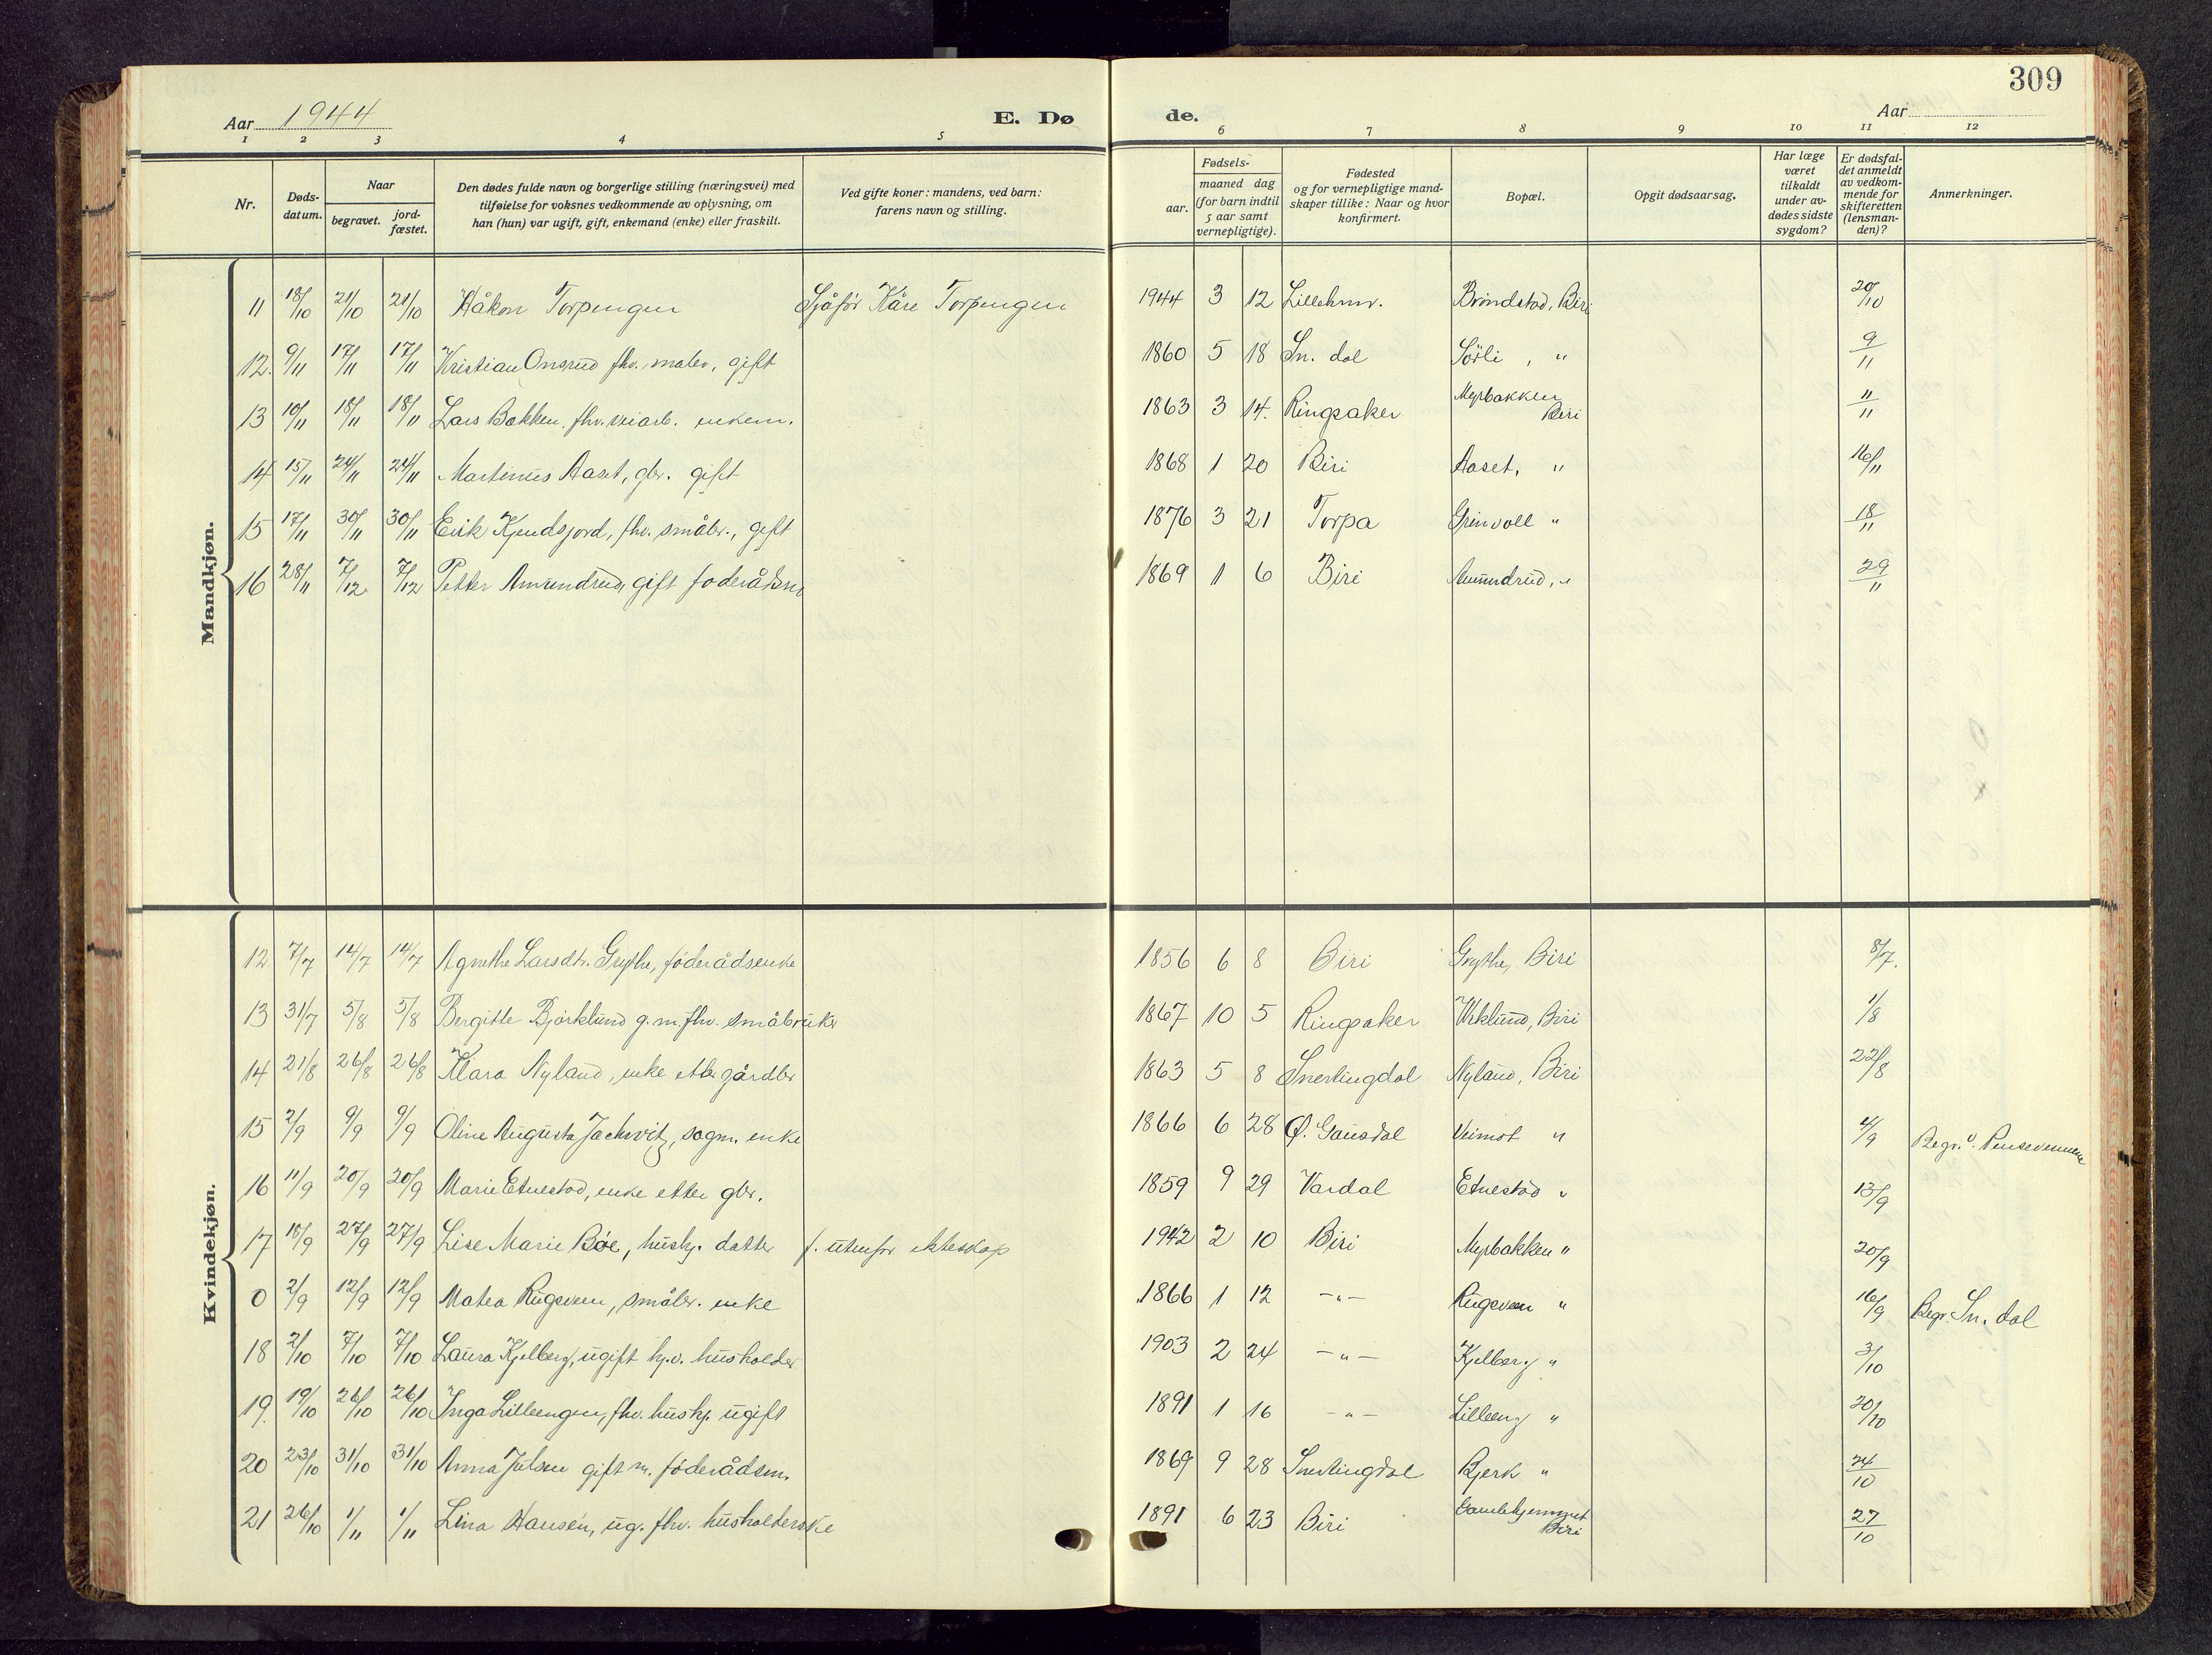 309
Aar 1944
E. Dø
de.
Aar
1 2 3 4 5 6 7 8 9 10 11 12
Nr.
Døds-
datum.
Naar
begravet.
jord-
fæstet.
Den dødes fulde navn og borgerlige stilling (næringsvei) med
tilføielse for voksnes vedkommende av oplysning, om
han (hun) var ugift, gift, enkemand (enke) eller fraskilt.
Ved gifte koner: mandens, ved barn:
farens navn og stilling.
Fødsels-
aar.
maaned dag
(for barn indtil
5 aar samt
vernepligtige).
Fødested
og for vernepligtige mand-
skaper tillike: Naar og hvor
konfirmert.
Bopæl.
Opgit dødsaarsag.
Har læge
været
tilkaldt
under av-
dødes sidste
sygdom?
Er dødsfal-
det anmeldt
av vedkom-
mende for
skifteretten
(lensman-
den)?
Anmerkninger.
Mandkjøn.
11 18/10 21/10 21/10 Håkon Torpengen Sjåfør Kåre Torpengen 1944 3 12 Lillehmr. Brøndstad, Biri 20/10
12. 9/11 17/11 17/11 Kristian Onsrud fhv. maler, gift 1860 5 18 Sn. dal Sørli, " 9/11
13 10/11 18/11 18/11 Lars Bakken, fhv. veiarb. enkem. 1863 3 14. Ringsaker Myrbakken Biri 11/11
14 15/11 24/11 24/11 Martinus Aaset, gbr. gift 1868 1 20 Biri Aaset, " 16/11
15 17/11 30/11 30/11 Erik Kjendsjord, fhv. småbr., gift 1876 3 21 Torpa Grinvoll " 18/11
16 28/11 7/12 7/12 Petter Amundrud, gift foderåds 1869 1 6 Biri Amundrud, " 29/11
Kvindekjøn.
12 7/7 14/7 14/7 Agnethe Larsdtr. Grythe, føderådsenke 1856 6 8 Biri Grythe, Biri 8/7.
13 31/7 5/8 5/8 Bergitte Bjørklund g. m. fhv. småbruker 1867 10 5 Ringsaker Biri 1/8
14 21/8 26/8 26/8 Klara Nyland, enke etter gårdbr 1863 5 8 Snertingdal Nyland, Biri 22/8
15 2/9 9/9 9/9 Oline Augusta Jachwitz, sagm. enke 1866 6 28 Ø. Gausdal Veimot " 4/9 Begr. v.
16 11/9 20/9 20/9 Marie Etnestad, enke etter gbr. 1859 9 29 Vardal Etnestad " 13/9
17 18/9 27/9 27/9 Lise Marie Bøe, huskj. datter f. utenfor ekteskap 1942 2 10 Biri Myrbakken " 20/9
0 2/9 12/9 12/9 Matea Rugsveen, småbr. enke 1866 1 12 -"- Rugsveen " 16/9 Begr. Sn. dal
18 2/10 7/10 7/10 Laura Kjelberg, ugift hj.v. husholder 1903 2 24 -"- Kjelberg " 3/10
19. 19/10 26/10 26/10 Inga Lilleengen, fhv. huskj. ugift 1891 1 16 -"- Lilleeng " 20/10
20 23/10 31/10 31/10 Anna Julsen gift m. føderådsm. 1869 9 28 Snertingdal Bjerk " 24/10
21 26/10 1/11 1/11 Lina Hansen, ug. fhv. husholderske 1891 6 23 Biri Gamlehjemmet Biri 27/10